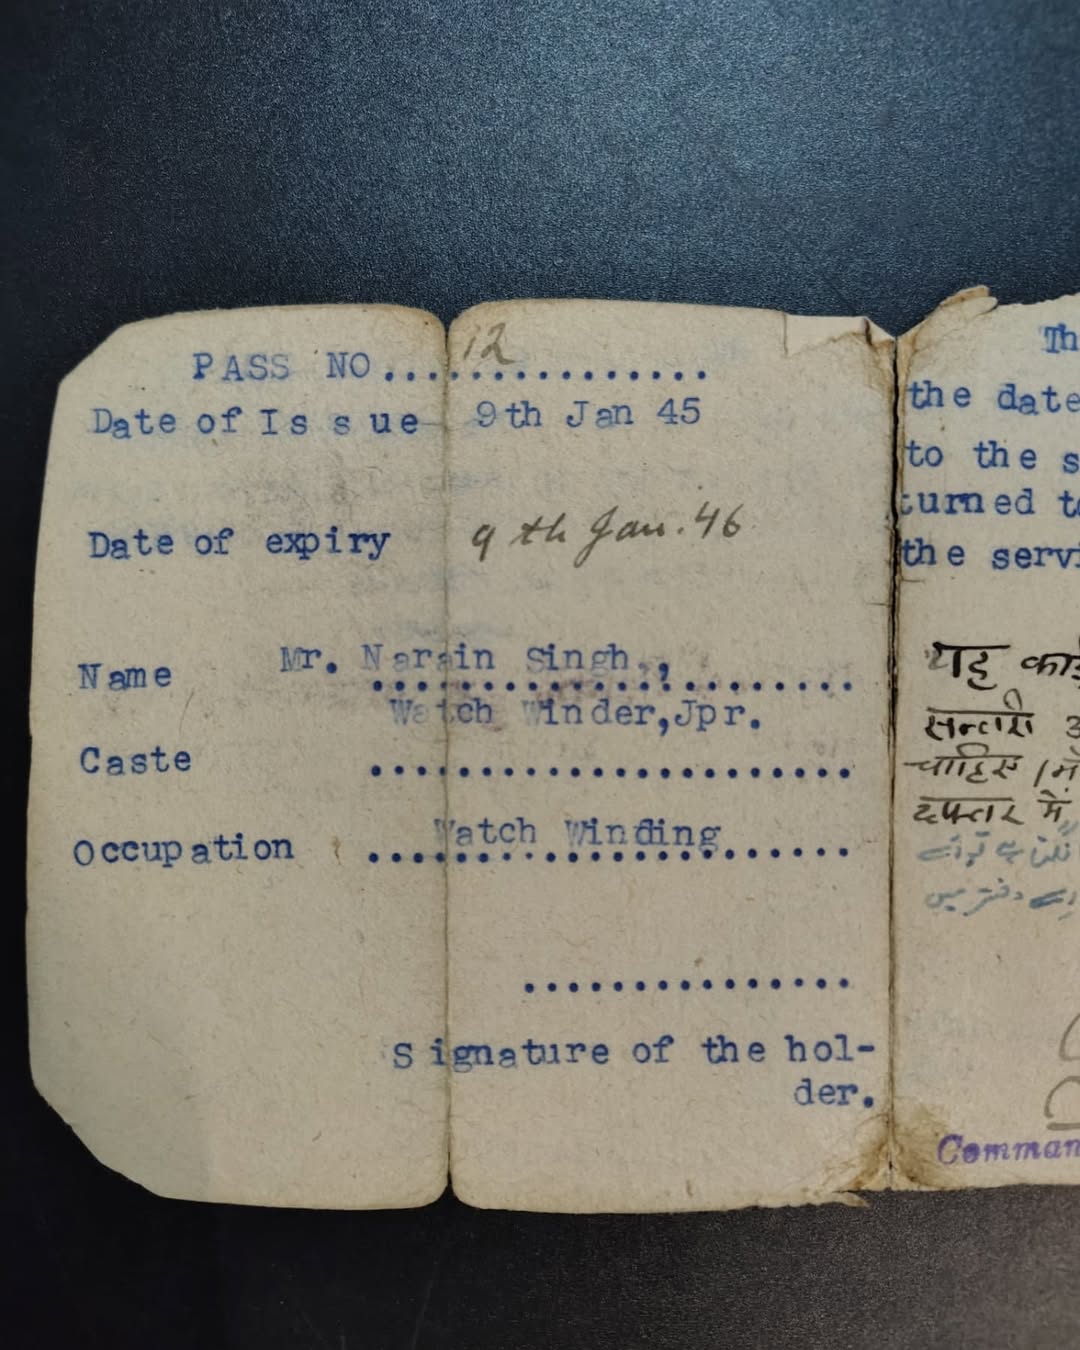 PASS NO.................12
Date of Issue 9th Jan 45
Date of expiry 9th Jan. 46
Name Mr. Narain Singh,,
Watch Winder,Jpr.
Caste ......................
Occupation Watch Winding
...............
Signature of the hol-
der.
Th
the date
to the s
turned to
the servi
यह कार्ड
सन्तरी
चाहिए
दफ्तर में
دفتر میں
Comman